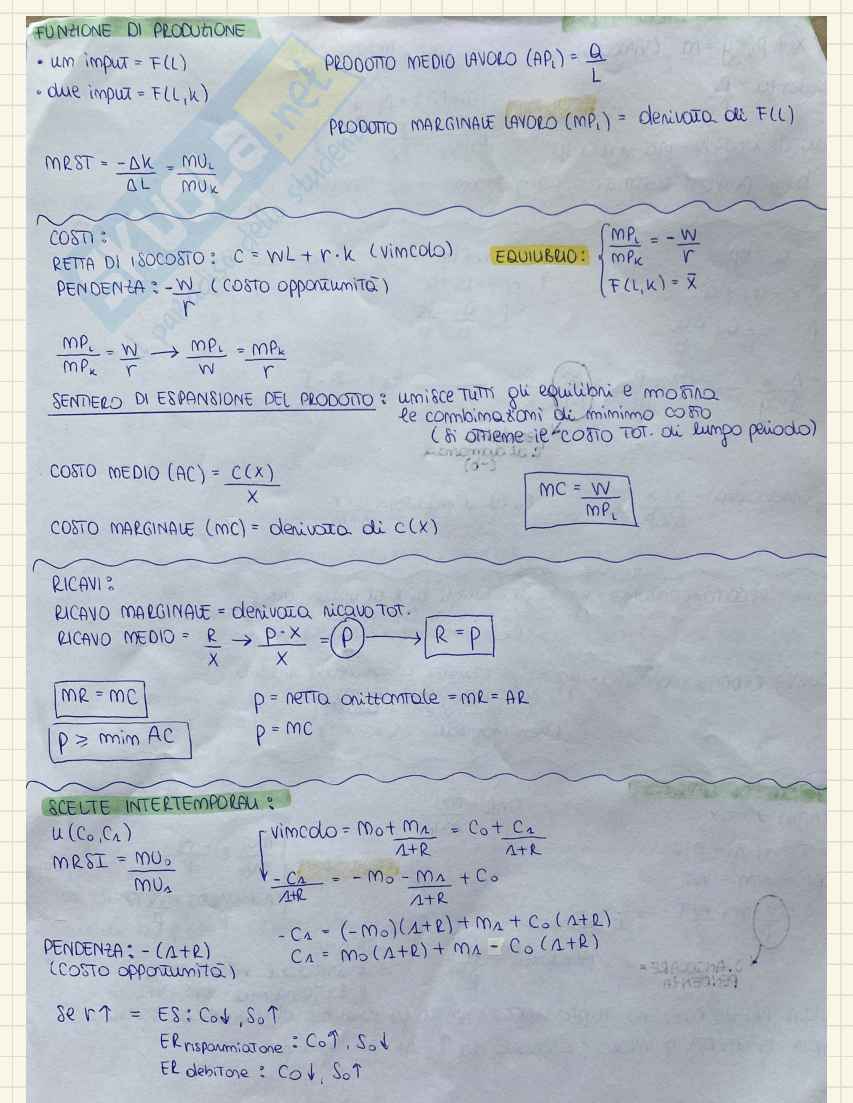 FUNZIONE DI PRODUZIONE
• un input = F(L)
• due input = F(L,K)
PRODOTTO MEDIO LAVORO (APL) = Q/L
PRODOTTO MARGINALE LAVORO (MPL) = derivata di F(L)
MRST = -ΔK/ΔL = MUL/MUK
COSTI:
RETTA DI ISOCOSTO: C = WL + r·K (vincolo)
PENDENZA: -W/r (costo opportunità)
EQUILIBRIO: { MPL/MPK = -W/r
F(L,K) = x̄
MPL/MPK = W/r → MPL/W = MPK/r
SENTIERO DI ESPANSIONE DEL PRODOTTO: unisce tutti gli equilibri e mostra
le combinazioni di minimo costo
(si ottiene il costo tot. di lungo periodo)
COSTO MEDIO (AC) = C(X)/X
MC = W/MPL
COSTO MARGINALE (MC) = derivata di C(X)
RICAVI:
RICAVO MARGINALE = derivata ricavo tot.
RICAVO MEDIO = R/X → P·X/X = P → R = P
MR = MC
P ≥ min AC
P = retta orizzontale = MR = AR
P = MC
SCELTE INTERTEMPORALI:
U(C0,C1)
MRSI = MU0/MU1
vincolo = M0 + M1/1+R = C0 + C1/1+R
-C1/1+R = -M0 - M1/1+R + C0
-C1 = (-M0)(1+R) + M1 + C0(1+R)
C1 = M0(1+R) + M1 - C0(1+R)
PENDENZA: -(1+R)
(costo opportunità)
Se r↑ = ES: C0↓, S0↑
ER risparmiatore: C0↑, S0↓
ER debitore: C0↓, S0↑
SKUOLA.net